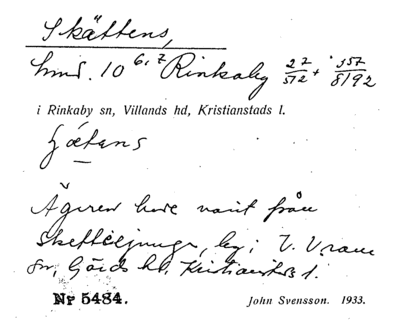 Skättens,
hmd. 10 6,7 Rinkaby 27/512 + 357/8192
i Rinkaby sn, Villands hd, Kristianstads l.
Ägaren hade varit från
by i V. Vram
sn, Gärds hd, Kristianstads l.
Nr 5484. John Svensson. 1933.